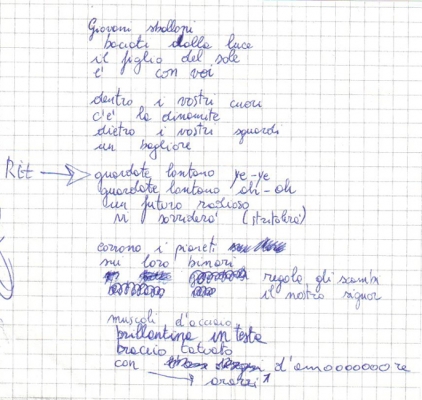 Giovani sballoni
baciati dalla luce
il figlio del sole
è con voi
dentro i vostri cuori
c'è la dinamite
dietro i vostri sguardi
un bagliore
Rit → guardate lontano ye-ye
guardate lontano ohi-oh
un futuro radioso
vi sorriderà (stritolerà)
corrono i pianeti
sui loro binari
regola gli scambi
il nostro signor
muscoli d'acciaio
brillantina in testa
braccio tatuato
con d'amoooooooore